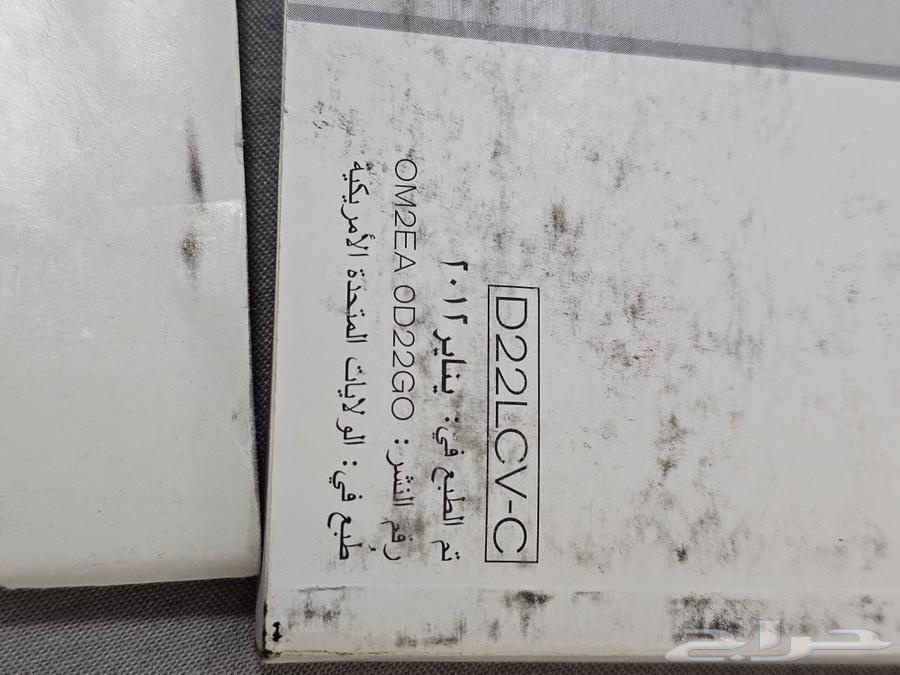 D22LCV-C
تم الطبع في: يناير ٢٠١٢
رقم النشر: OM2EA 0D22GO
طُبع في: الولايات المتحدة الأمريكية
حراج